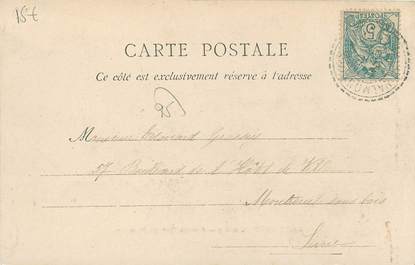 15€
CARTE POSTALE
Ce côté est exclusivement réservé à l'adresse
25
Monsieur Edouard
57 Boulevard de l'Hôtel de Ville
Montreuil sous bois
Seine
5